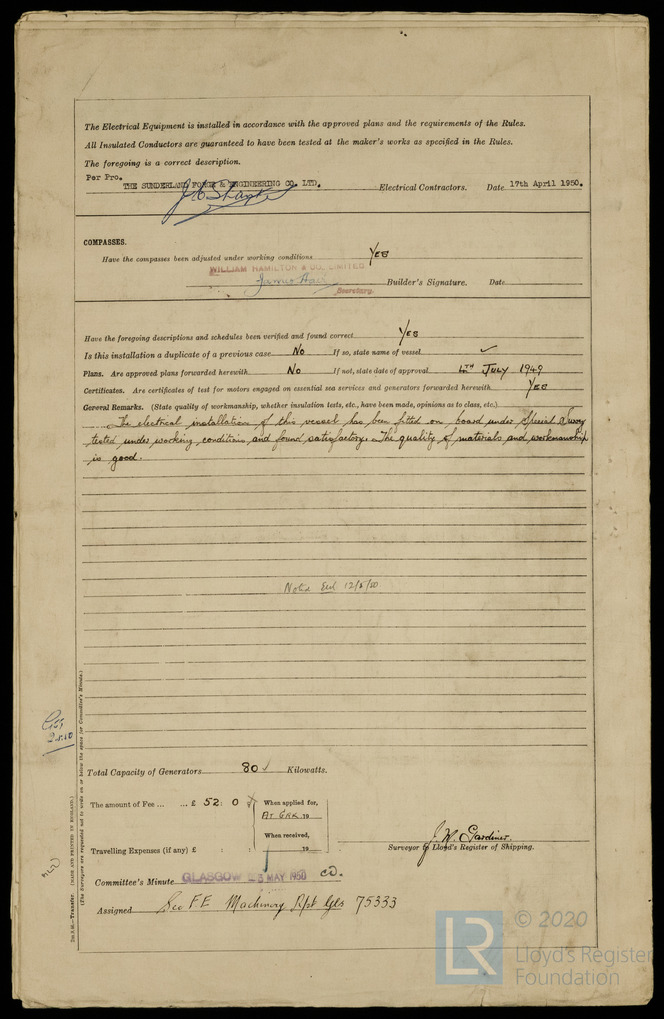 The Electrical Equipment is installed in accordance with the approved plans and the requirements of the Rules.
All Insulated Conductors are guaranteed to have been tested at the maker's works as specified in the Rules.
The foregoing is a correct description.
Per Pro.
THE SUNDERLAND FORGE & ENGINEERING CO. LTD. Electrical Contractors. Date 17th April 1950.
COMPASSES.
Have the compasses been adjusted under working conditions YES
WILLIAM HAMILTON & CO. LIMITED
Builder's Signature. Date
Secretary.
Have the foregoing descriptions and schedules been verified and found correct YES
Is this installation a duplicate of a previous case No If so, state name of vessel
Plans. Are approved plans forwarded herewith No If not, state date of approval 4TH JULY 1949
Certificates. Are certificates of test for motors engaged on essential sea services and generators forwarded herewith YES
General Remarks. (State quality of workmanship, whether insulation tests, etc., have been made, opinions as to class, etc.)
The electrical installation of this vessel has been fitted on board under Special Survey
tested under working conditions and found satisfactory. The quality of materials and workmanship
is good.
Noted 12/5/50
Total Capacity of Generators 80 Kilowatts.
The amount of Fee ... ... £ 52: 0 When applied for,
AT GRK. 19
When received,
Travelling Expenses (if any) £ : : 19
J. W. Gardiner.
Surveyor to Lloyd's Register of Shipping.
Committee's Minute GLASGOW 3 MAY 1950
Assigned See F.E. Machinery Rpt Gls 75333
2m.5.48.—Transfer. (MADE AND PRINTED IN ENGLAND.)
(The Surveyors are requested not to write on or below the space for Committee's Minute.)
LR © 2020
Lloyd's Register
Foundation